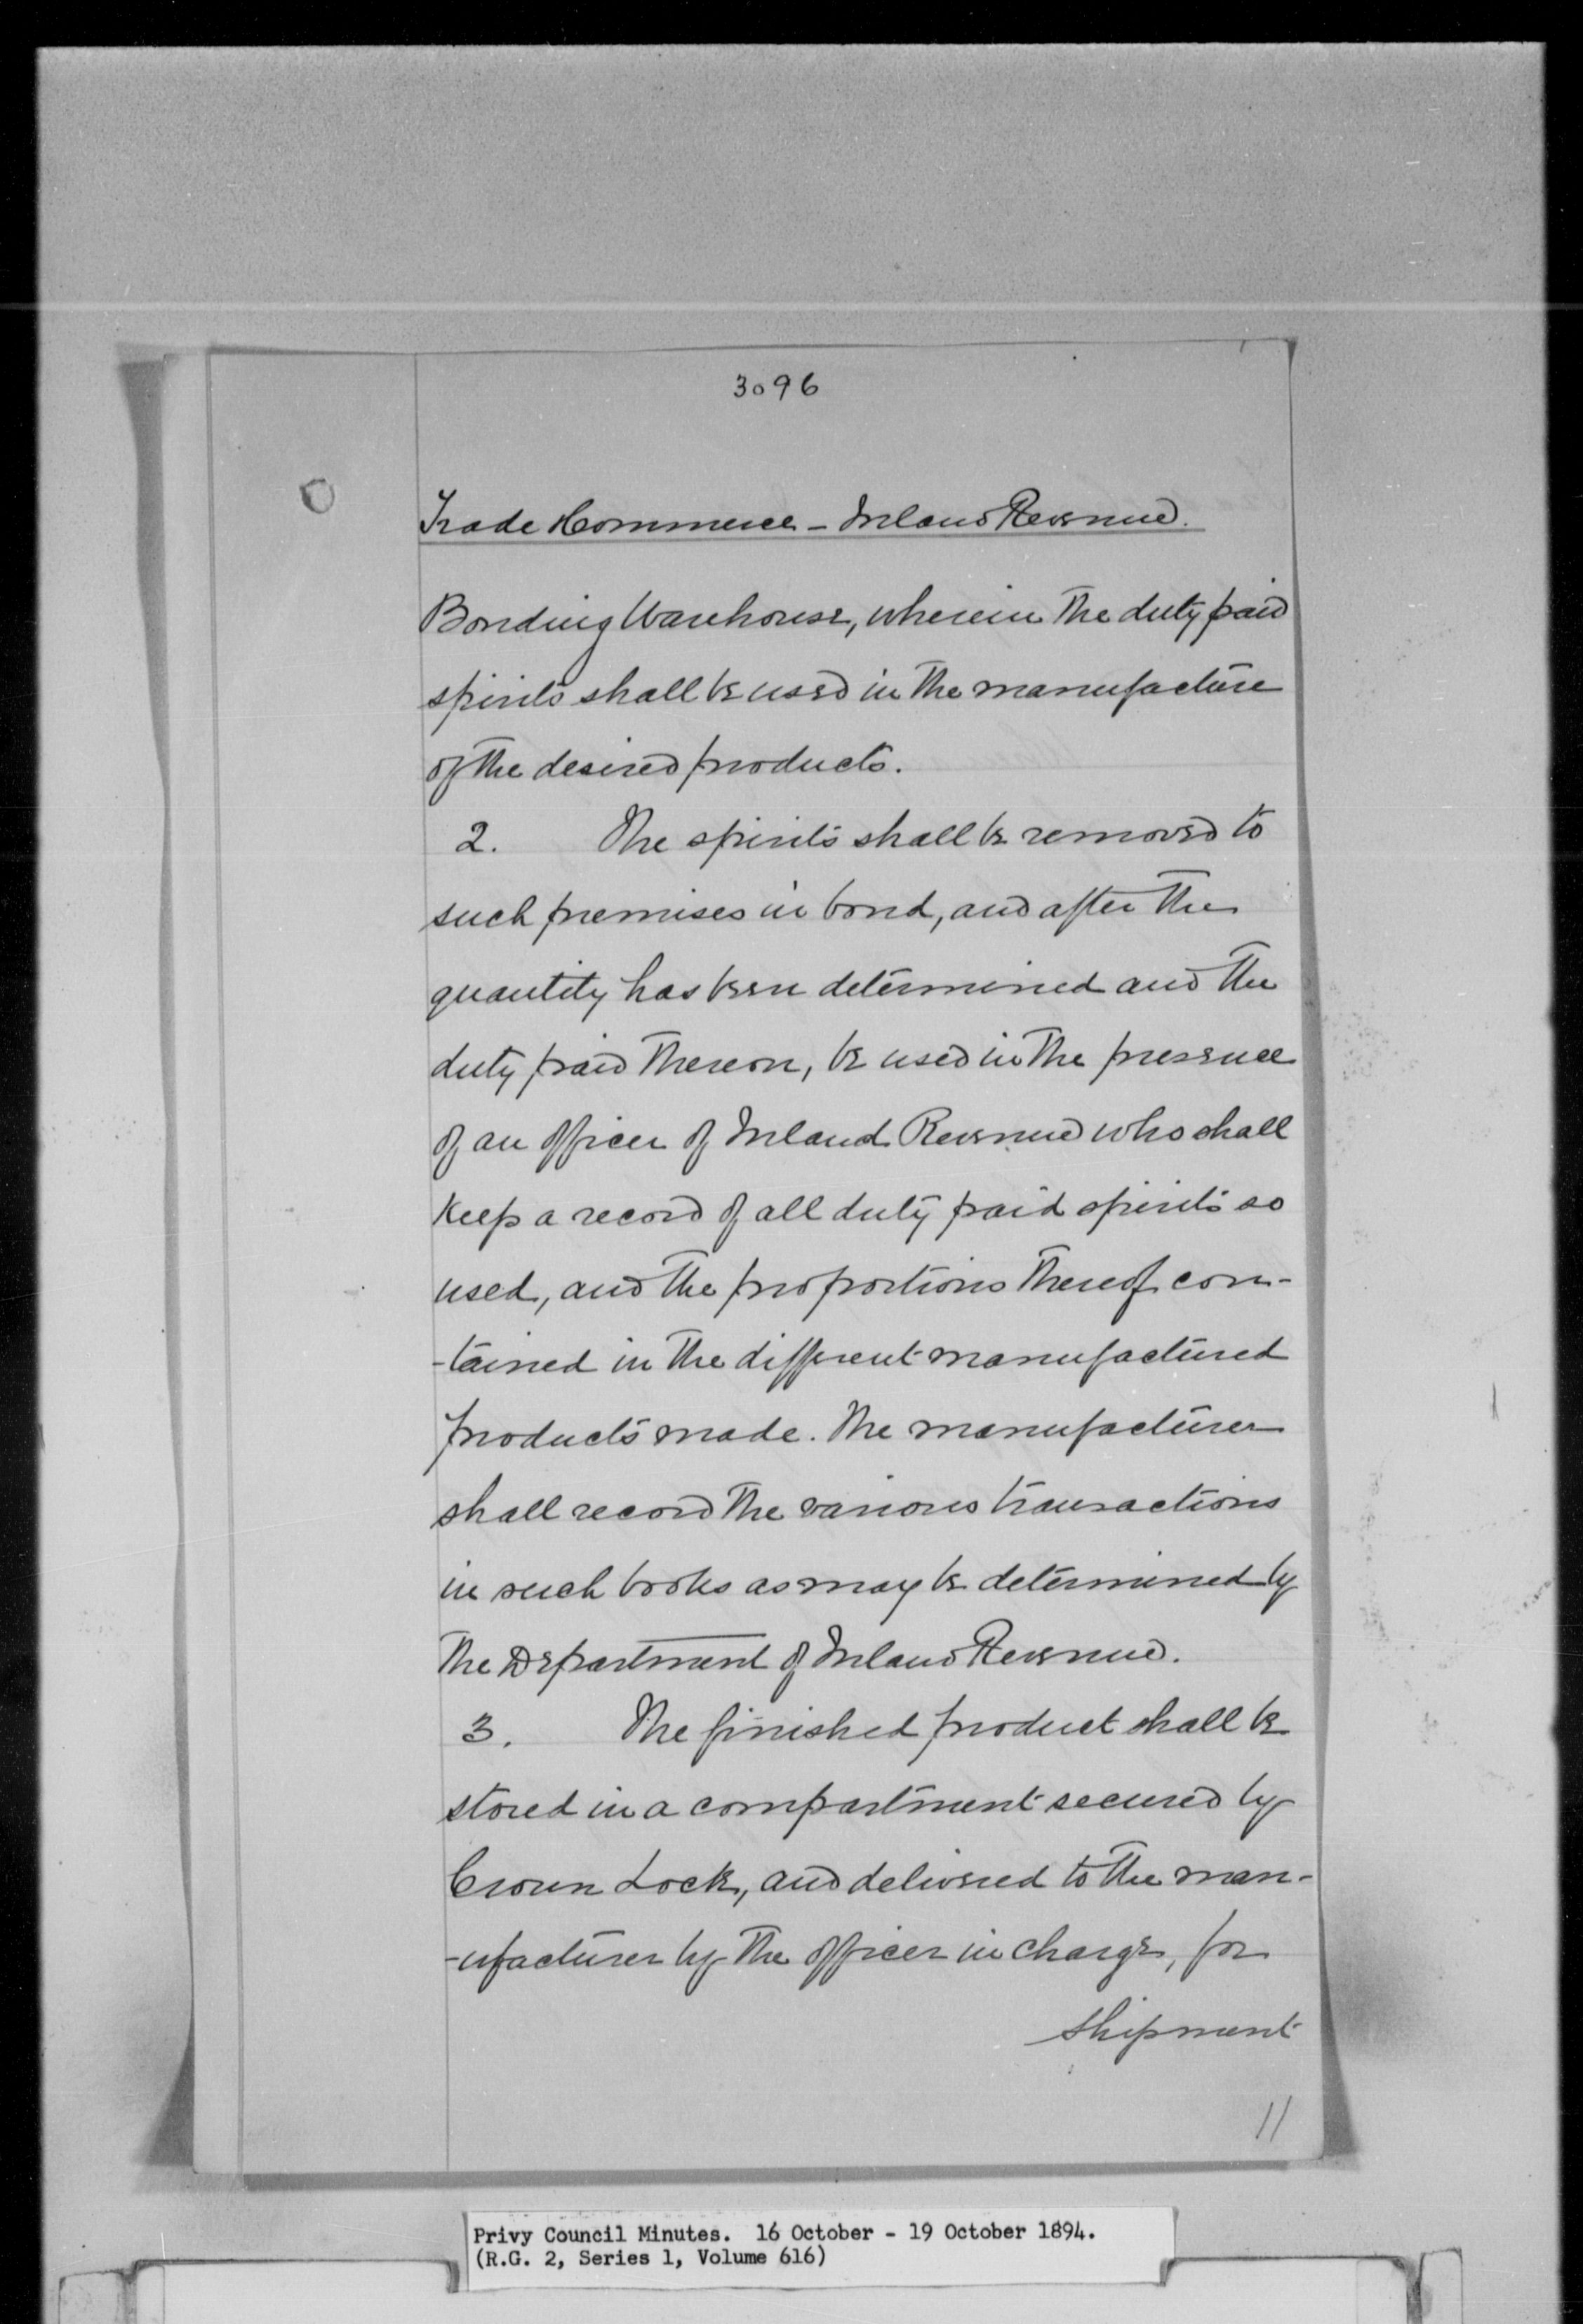 3096
Trade & Commerce - Inland Revenue.
Bonding Warehouse, wherein the duty paid
spirits shall be used in the manufacture
of the desired products.
2. The spirits shall be removed to
such premises in bond, and after the
quantity has been determined and the
duty paid thereon, be used in the presence
of an officer of Inland Revenue who shall
keep a record of all duty paid spirits so
used, and the proportions thereof con-
-tained in the different manufactured
products made. The manufacturer
shall record the various transactions
in such books as may be determined by
the Department of Inland Revenue.
3. The finished product shall be
stored in a compartment secured by
Crown Lock, and delivered to the man-
-ufacturer by the officer in charge, for
shipment
11
Privy Council Minutes. 16 October - 19 October 1894.
(R.G. 2, Series 1, Volume 616)